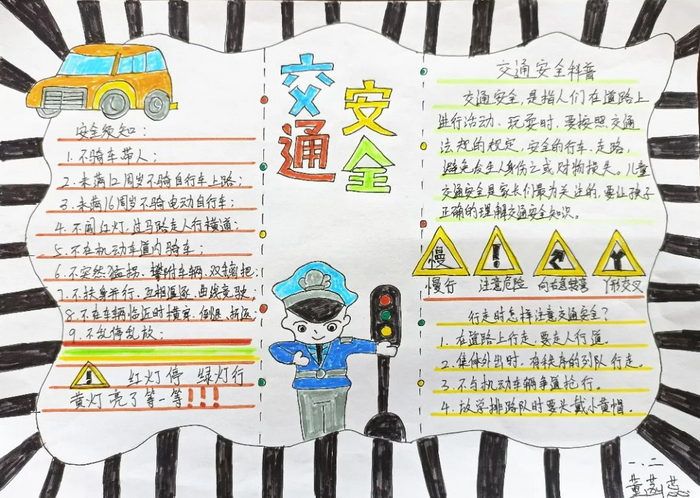 交通
安全
安全须知：
1.不骑车带人；
2.未满12周岁不骑自行车上路；
3.未满16周岁不骑电动自行车；
4.不闯红灯，过马路走人行横道；
5.不在机动车道内骑车；
6.不突然猛拐、攀附车辆、双手离把；
7.不扶身并行、互相追逐、曲线竞驶。
8.不在车辆临近时横穿、
9.不乱停乱放；
红灯停 绿灯行
黄灯亮了等一等!!!
交通安全科普
交通安全，是指人们在道路上
进行活动、玩耍时，要按照交通
法规的规定，安全的行车、走路，
避免发生人身伤亡或财物损失。儿童
交通安全是家长们最为关注的，要让孩子
正确的理解交通安全知识。
慢
慢行
注意危险
向右急转弯
Y形交叉
行走时怎样注意交通安全？
1.在道路上行走，要走人行道。
2.集体外出时，有秩序的列队行走。
3.不与机动车辆争道抢行。
4.放学排路队时要头戴小黄帽。
一.二